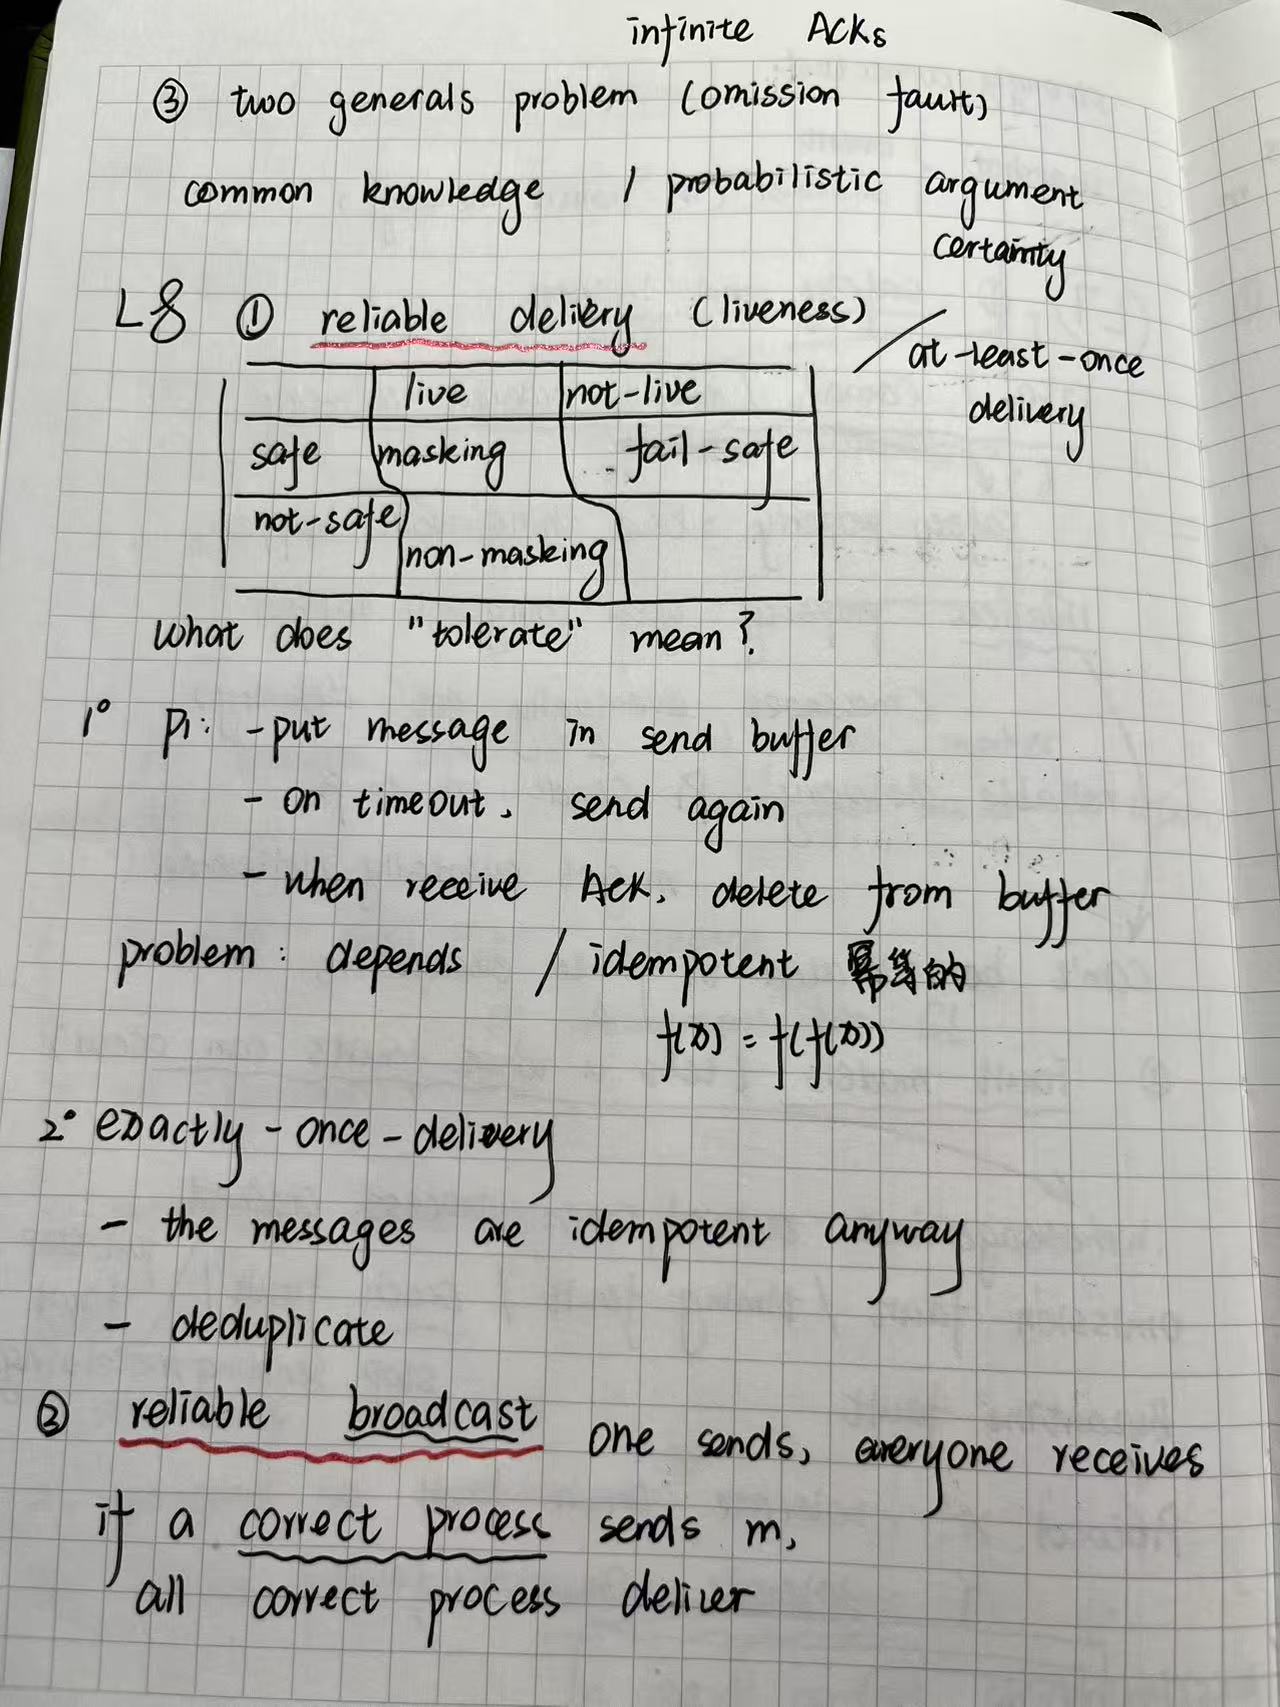 infinite Acks
③ two generals problem (omission fault)
common knowledge / probabilistic argument
certainty
L8 ① reliable delivery (liveness) / at-least-once
delivery
live not-live
safe masking fail-safe
not-safe non-masking
what does "tolerate" mean?
1° P1: - put message in send buffer
- on timeout, send again
- when receive Ack, delete from buffer
problem: depends / idempotent 幂等的
f(x) = f(f(x))
2° exactly-once-delivery
- the messages are idempotent anyway
- deduplicate
② reliable broadcast one sends, everyone receives
if a correct process sends m,
all correct process deliver